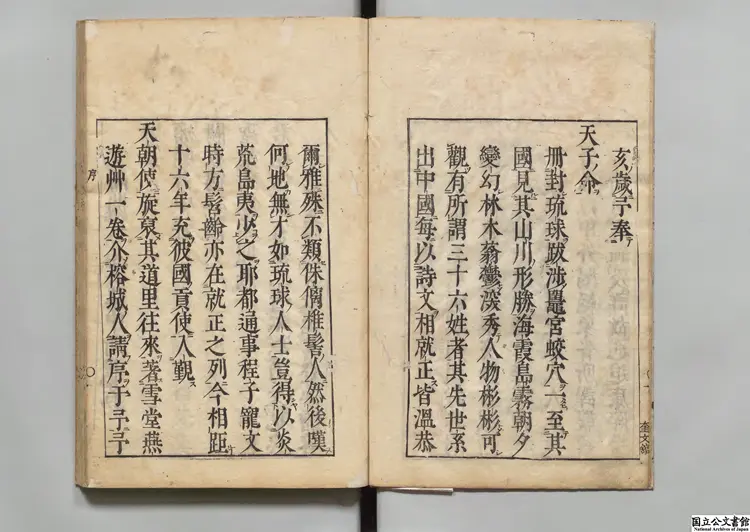 亥歲予奉
天子命
冊封琉球跋涉黿宮蛟穴一至其
國見其山川形勝海霞島霧朝夕
變幻林木蓊鬱深秀人物彬彬可
觀有所謂三十六姓者其先世系
出中國每以詩文相就正皆溫恭
奎文館
爾雅殊不類侏㒧椎髻人然後嘆
何地無才如琉球人士豈得以炎
荒島夷少之耶都通事程子寵文
時方髫齡亦在就正之列今相距
十六年充彼國貢使入覲
天朝使旋裒其道里往來著雪堂燕
遊艸一卷介榕城人請序于予予
序
国立公文書館
National Archives of Japan